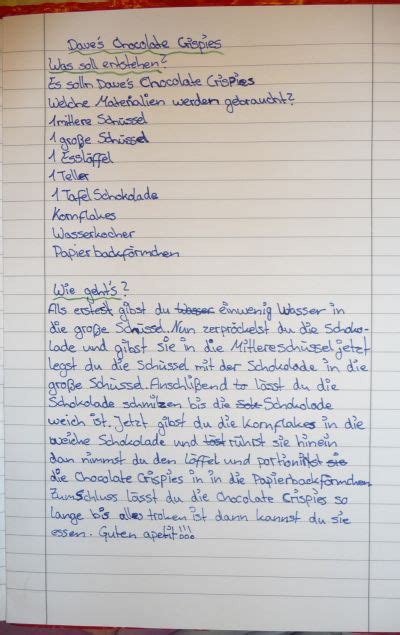 Dave's Chocolate Crispies
Was soll entstehen?
Es solln Dave's Chocolate Crispies
Welche Materialien werden gebraucht?
1 mittlere Schüssel
1 große Schüssel
1 Esslöffel
1 Teller
1 Tafel Schokolade
Kornflakes
Wasserkocher
Papierbackförmchen
Wie geht's?
Als erstest gibst du Wasser einwenig Wasser in
die große Schüssel. Nun zerpröckelst du die Schoko-
lade und gibst sie in die Mittlereschüssel jetzt
legst du die Schüssel mit der Schokolade in die
große Schüssel. Anschlißend lässt du die
Schokolade schmilzen bis die Schokolade
weich ist. Jetzt gibst du die Kornflakes in die
weiche Schokolade und rührst sie hinein
dan nimmst du den Löffel und portionirst sie
die Chocolate Crispies in in die Papierbackförmchen
Zumschluss lässt du die Chocolate Crispies so
lange bis alles troken ist dann kannst du sie
essen. Guten apetit!!!